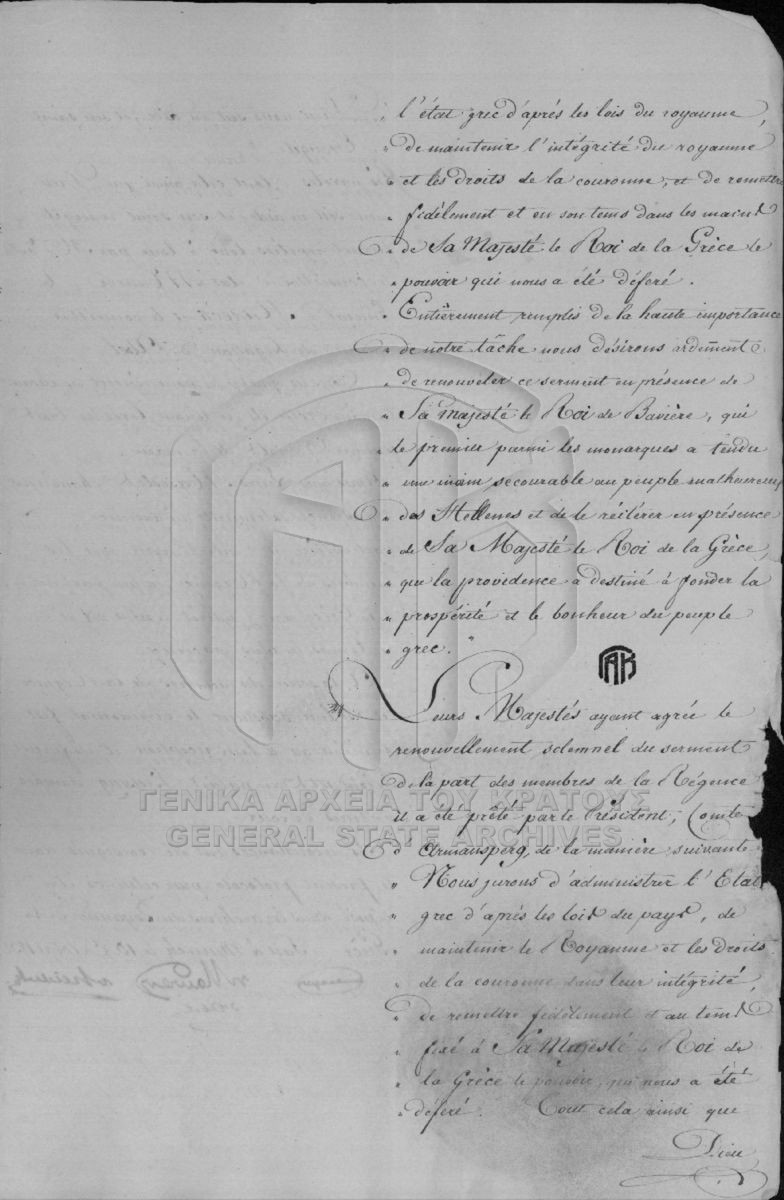 „ l'état grec d'après les lois du royaume,
„ de maintenir l'intégrité du royaume
„ et les droits de la couronne, et de remettre
„ fidèlement et en son tems dans les mains
„ de Sa Majesté le Roi de la Grèce le
„ pouvoir qui nous a été déferé.
„ Entièrement remplis de la haute importance
„ de notre tâche nous désirons ardemment
„ de renouveler ce serment en présence de
„ Sa Majesté le Roi de Bavière, qui
„ le premier parmi les monarques a tendu
„ une main secourable au peuple malheureux
„ des Hellenes et de le réitérer en présence
„ de Sa Majesté le Roi de la Grèce,
„ que la providence a destiné à fonder la
„ prospérité et le bonheur du peuple
„ grec. "
ΓΑΚ
Leurs Majestés ayant agrée le
renouvellement solemnel du serment
de la part des membres de la Régence
ΓΕΝΙΚΑ ΑΡΧΕΙΑ ΤΟΥ ΚΡΑΤΟΥΣ
il a été prêté par le Président, Comte
GENERAL STATE ARCHIVES
d'Armansperg, de la manière suivante
„ Nous jurons d'administrer l'Etat
„ grec d'après les lois du pays, de
„ maintenir le Royaume et les droits
„ de la couronne dans leur intégrité,
„ de remettre fidèlement et au tems
„ fixé à Sa Majesté le Roi de
„ la Grèce le pouvoir, qui nous a été
„ déferé. Tout cela ainsi que
Dieu